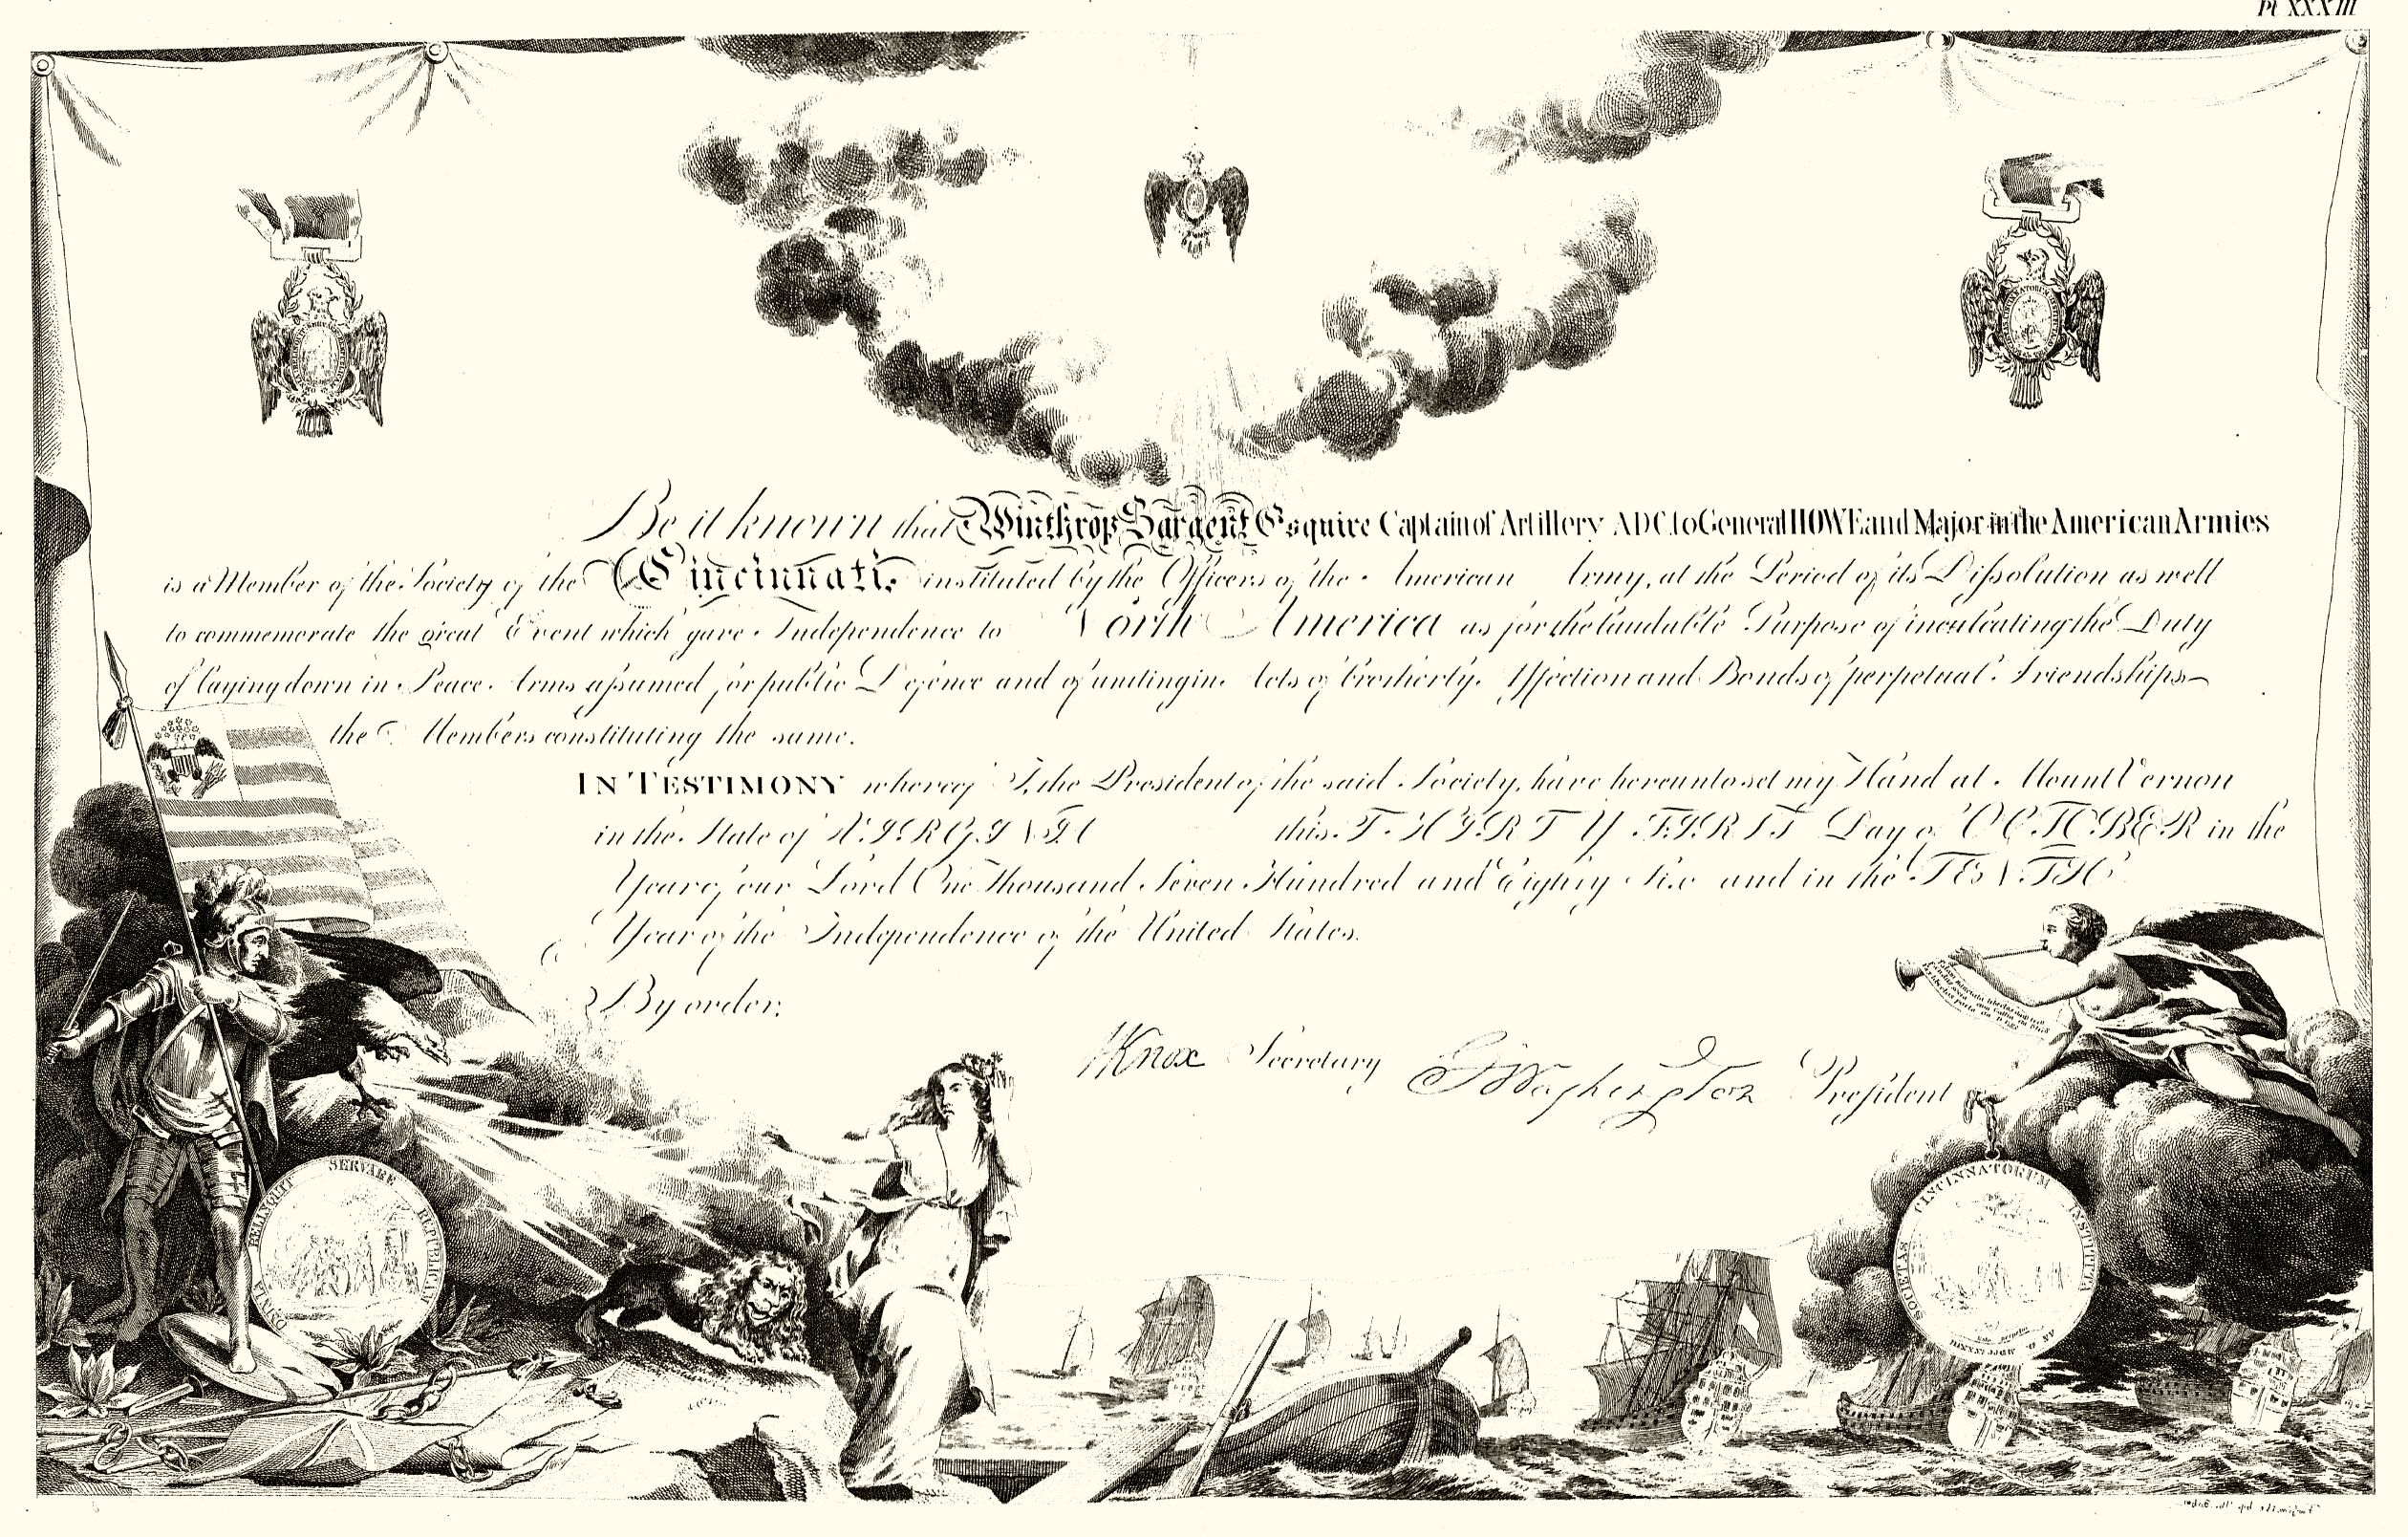 Pl XXXIII
Be it known that Winthrop Sargent Esquire Captain of Artillery ADC. to General HOWE and Major in the American Armies
is a Member of the Society of the Cincinnati; instituted by the Officers of the American Army, at the Period of its Dissolution as well
to commemorate the great Event which gave Independence to North America as for the laudable Purpose of inculcating the Duty
of laying down in Peace Arms assumed for public Defence and of uniting in Acts of brotherly Affection and Bonds of perpetual Friendships
the Members constituting the same.
IN TESTIMONY whereof I, the President of the said Society, have hereunto set my Hand at Mount Vernon
in the State of VIRGINIA this THIRTY FIRST Day of OCTOBER in the
Year of our Lord One Thousand Seven Hundred and Eighty Six and in the TENTH
Year of the Independence of the United States.
By order,
HKnox Secretary
GWashington President
OMNIA RELINQUIT SERVARE REPUBLICAM
SOCIETAS CINCINNATORUM INSTITUTA